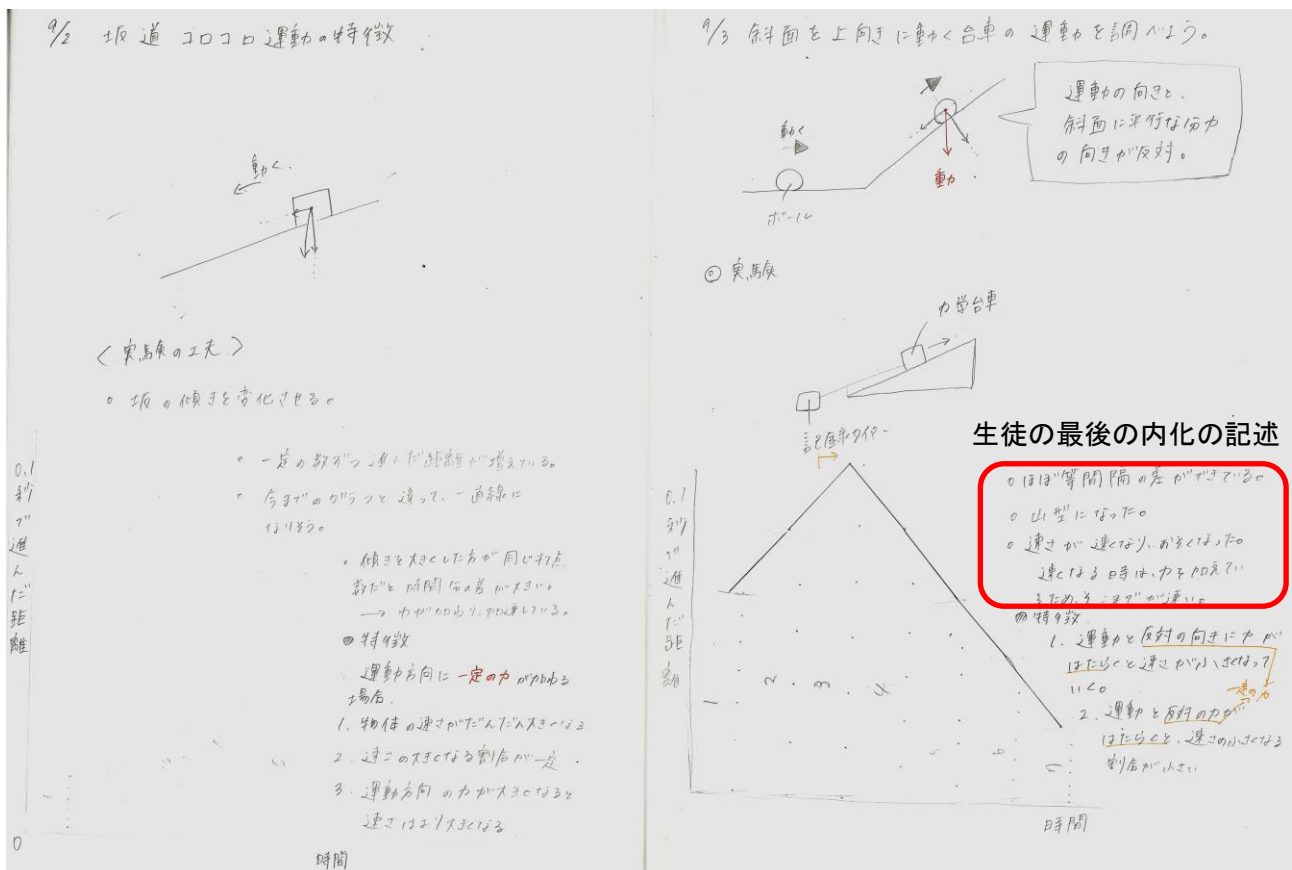 9/2 坂道コロコロ運動の特徴
動く
<実験の工夫>
○ 坂の傾きを変化させる。
0.1秒で進んだ距離
○ 一定の数ずつ進んだ距離が増えている。
○ 今までのグラフと違って、一直線に
なりそう。
○ 傾きを大きくした方が同じ打点
数だと時間 の差が大きい。
→ 力が加わり、加速している。
◎ 特徴
運動方向に一定の力が加わる
場合。
1. 物体の速さがだんだん大きくなる
2. 速さの大きくなる割合が一定.
3. 運動方向の力が大きくなると
速さはより大きくなる
0
時間
9/3 斜面を上向きに動く台車の運動を調べよう。
運動の向きと、
斜面に平行な分力
の向きが反対。
動く
重力
ボール
◎ 実験
力学台車
記録タイマー
生徒の最後の内化の記述
0.1秒で進んだ距離
○ ほぼ等間隔の差ができている。
○ 山型になった。
○ 速さが速くなり、おそくなった。
速くなる時は、力を加えてい
るため、そこまでが速い。
◎ 特徴
1. 運動と反対の向きに力が
はたらくと速さが小さくなって
いく。
一定の力
2. 運動と反対の力が
はたらくと、速さの小さくなる
割合が小さい
1 2 3 4 5 6 7
時間